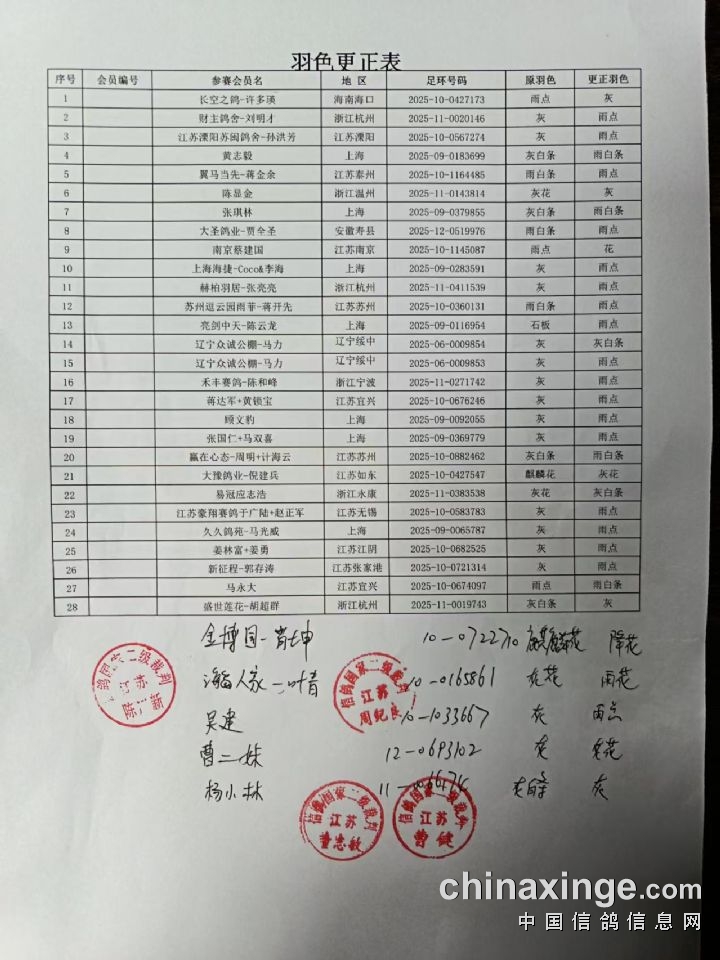 羽色更正表
序号 会员编号 参赛会员名 地 区 足环号码 原羽色 更正羽色
1 长空之鸽-许多瑛 海南海口 2025-10-0427173 雨点 灰
2 财主鸽舍-刘明才 浙江杭州 2025-11-0020146 灰 雨点
3 江苏溧阳苏闽鸽舍-孙洪芳 江苏溧阳 2025-10-0567274 灰 雨点
4 黄志毅 上海 2025-09-0183699 灰白条 雨白条
5 翼马当先-蒋金余 江苏泰州 2025-10-1164485 雨白条 雨点
6 陈显金 浙江温州 2025-11-0143814 灰花 灰
7 张琪林 上海 2025-09-0379855 灰白条 雨白条
8 大圣鸽业-贾全圣 安徽寿县 2025-12-0519976 雨白条 雨点
9 南京蔡建国 江苏南京 2025-10-1145087 雨点 花
10 上海海捷-Coco&李海 上海 2025-09-0283591 灰 雨点
11 赫柏羽居-张亮亮 浙江杭州 2025-11-0411539 灰 雨点
12 苏州逗云园雨菲-蒋开先 江苏苏州 2025-10-0360131 雨白条 雨点
13 亮剑中天-陈云龙 上海 2025-09-0116954 石板 雨点
14 辽宁众诚公棚-马力 辽宁绥中 2025-06-0009854 灰 灰白条
15 辽宁众诚公棚-马力 辽宁绥中 2025-06-0009853 灰 雨点
16 禾丰赛鸽-陈和峰 浙江宁波 2025-11-0271742 灰 雨点
17 蒋达军+黄锁宝 江苏宜兴 2025-10-0676246 灰 雨点
18 顾文豹 上海 2025-09-0092055 灰 雨点
19 张国仁+马双喜 上海 2025-09-0369779 灰 雨点
20 赢在心态-周明+计海云 江苏苏州 2025-10-0882462 灰白条 雨白条
21 大豫鸽业-倪建兵 江苏如东 2025-10-0427547 麒麟花 灰花
22 易冠应志浩 浙江永康 2025-11-0383538 灰花 灰白条
23 江苏豪翔赛鸽于广陆+赵正军 江苏无锡 2025-10-0583783 灰 雨点
24 久久鸽苑-马光威 上海 2025-09-0065787 灰 雨点
25 姜林富+姜勇 江苏江阴 2025-10-0682525 灰 雨点
26 新征程-郭存涛 江苏张家港 2025-10-0721314 灰 雨点
27 马永大 江苏宜兴 2025-10-0674097 雨点 雨白条
28 盛世莲花-胡超群 浙江杭州 2025-11-0019743 灰白条 灰
金博园-肖士申 10-0722710 麒麟花 降花
人家-叶青 10-0165861 灰花 雨花
吴建 10-1033667 灰 雨点
曹二妹 12-0693102 灰 灰花
杨小林 灰
信鸽国家二级裁判
江苏
周纪良
信鸽国家二级裁判
江苏
董忠敏
信鸽国家二级裁判
江苏
曹健
鸽国家二级裁判
江苏
陈
chinaxinge.com
中国信鸽信息网